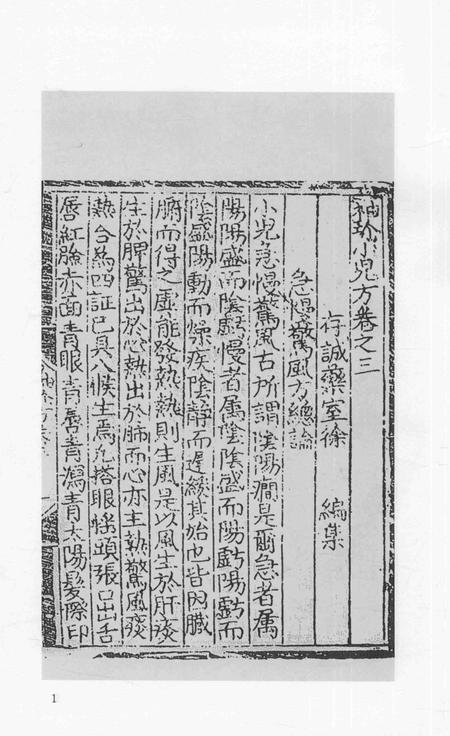 袖珍小兒方卷之三
存誠藥室徐　編集
急慢驚風方總論
小兒急慢驚風古所謂陰陽癇是爾急者属
陽陽盛而陰虧慢者属陰陰盛而陽虧陽虧而
陰盛陽動而燥疾陰静而遲緩其始也皆因臟
腑而得之虛能發热热則生風是以風生於肝痰
生於脾驚出於心热出於肺而心亦主热驚風痰
热合為四証已具八候生焉凡搭眼搖頭張口出舌
唇紅臉赤面青眼青唇青瀉青太陽髮際印
1